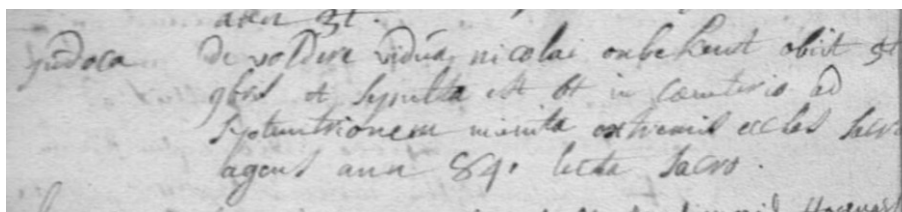 aeta 3t.
judoca de voldere vidua nicolai onbekent obiit 5t
9bris et sepulta est 6t in cœmiterio ad
septentrionem munita extremis eccles sacr
agens ann 84. lecta sacro.